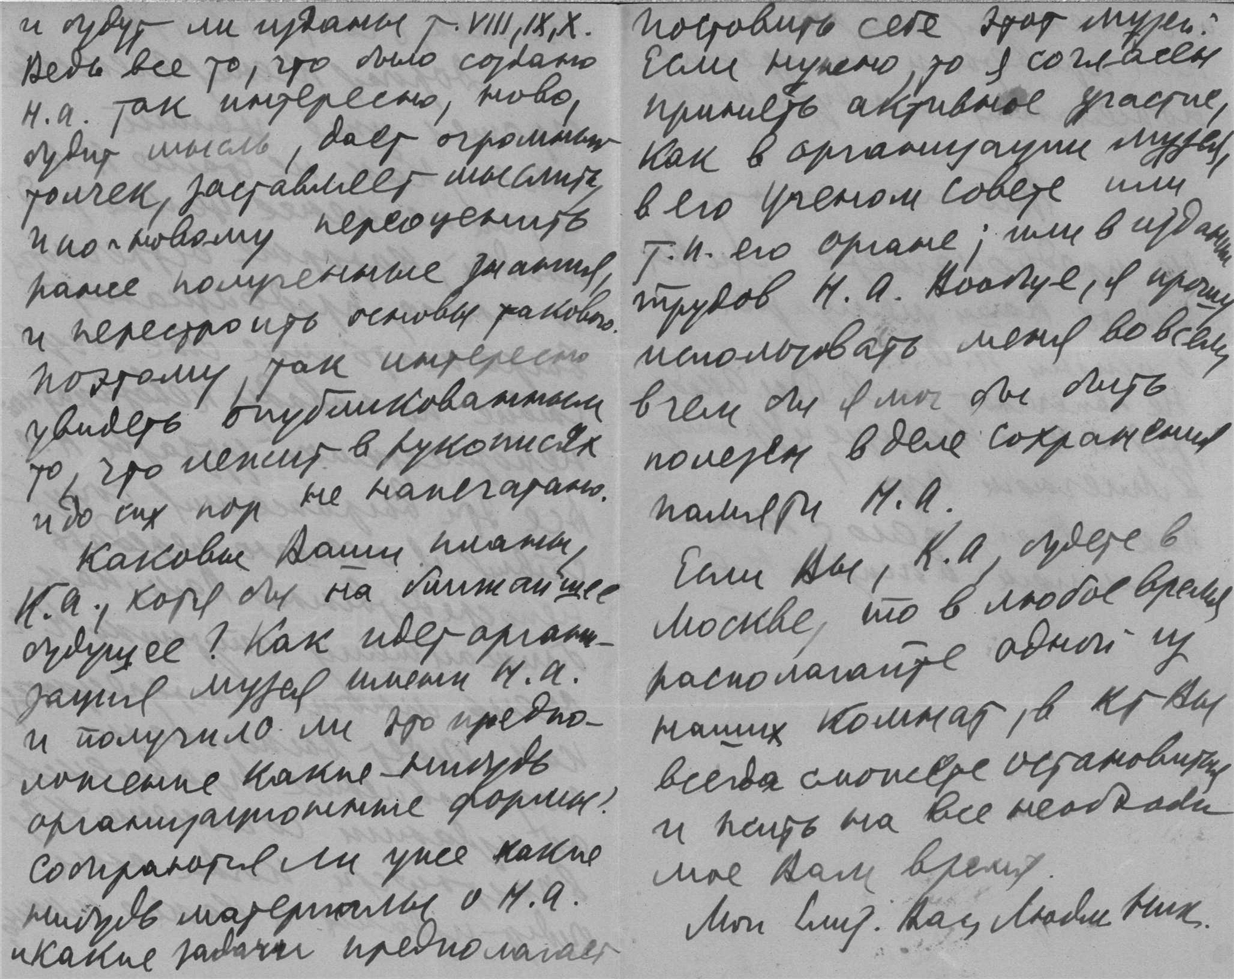 и будут ли изданы т. VIII, IX, X.
Ведь все то, что было создано
Н.А. так интересно, ново,
будит мысль, дает огромный
толчек, заставляет мыслить,
и по-новому переоценить
ранее полученные знания,
и перестроить основы такового.
Поэтому, так интересно
увидеть опубликованным
то, что лежит в рукописях
и до сих пор не напечатано.
Каковы Ваши планы,
К.А., хотя бы на ближайшее
будущее? Как идет органи-
зация музея имени Н.А.
и получило ли это предпо-
ложение какие-нибудь
организационные формы?
Собираются ли уже какие
нибудь материалы о Н.А.
и какие задачи предполагает
поставить себе этот музей?
Если нужно, то я согласен
принять активное участие,
как в организации музея,
в его Ученом совете или
т.п. его органе; или в издании
трудов Н.А. Вообще, я прошу
использовать меня во всем,
в чем бы я мог бы быть
полезен в деле сохранения
памяти Н.А.
Если Вы, К.А, будете в
Москве, то в любое время
располагайте одной из
наших комнат, в кт Вы
всегда сможете остановиться
и жить на все необходи
мое Вам время.
Мои Вам Людм Ник.